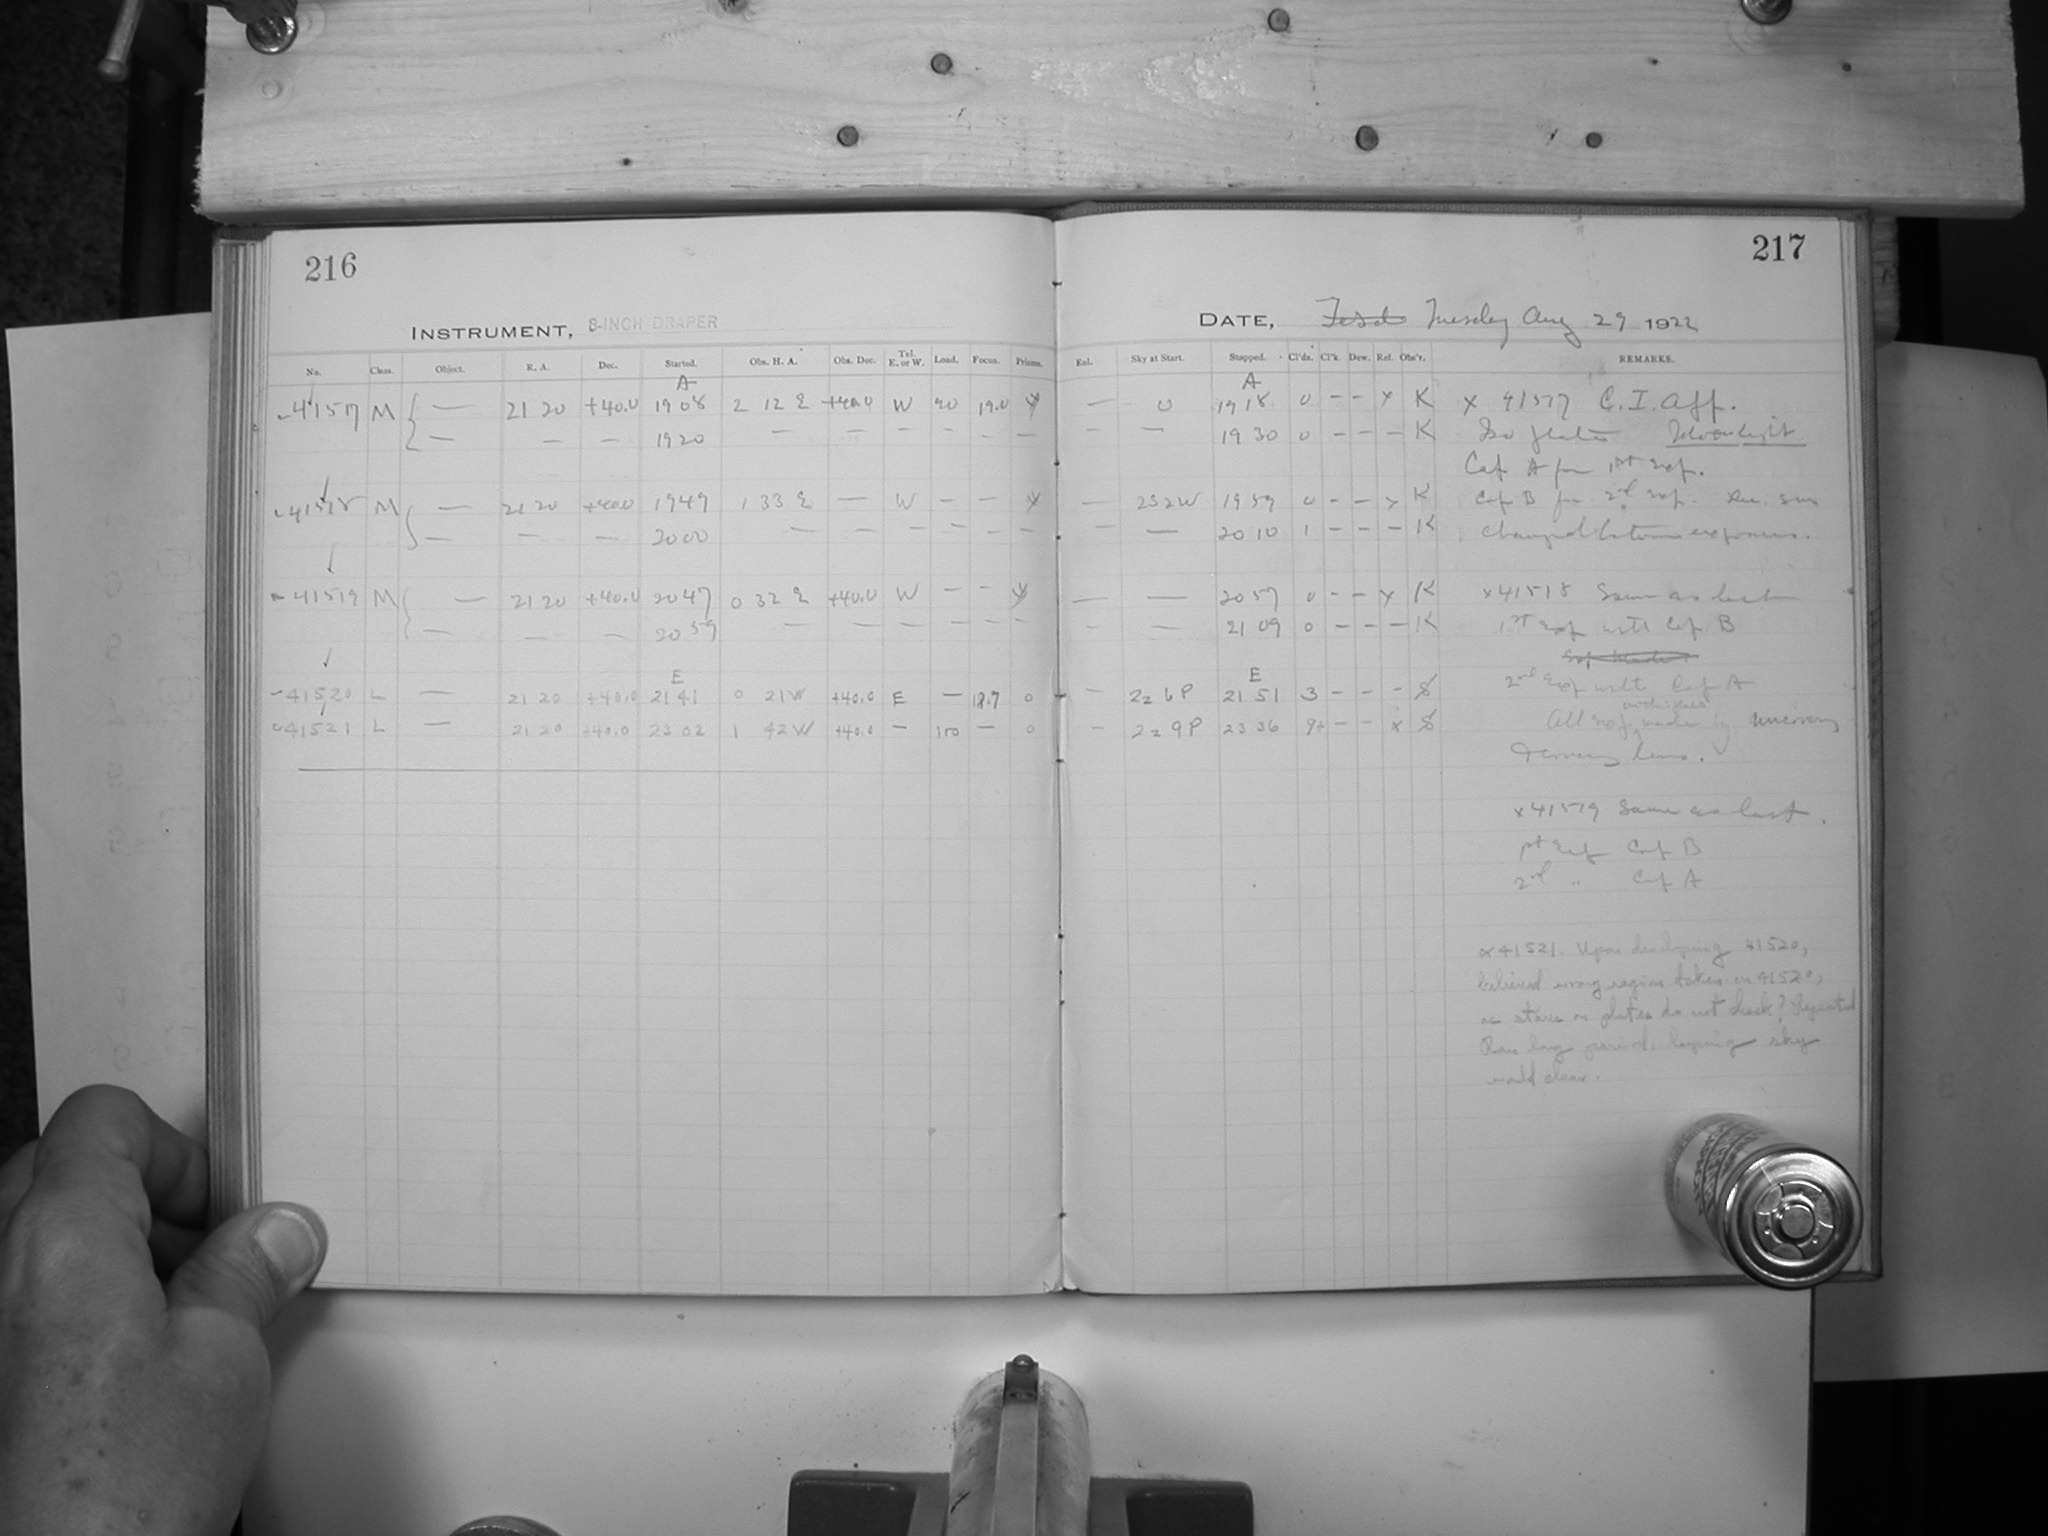 216
INSTRUMENT, 8-INCH DRAPER
No. Class. Object. R. A. Dec. Started. Obs. H. A. Obs. Dec. Tel. E. or W. Load. Focus. Prisms.
A
41517 M — 21 20 +40.0 19 08 2 12 E +40.0 W 90 19.0
— — — 19 20 — — — — — —
41518 M — 21 20 +40.0 19 49 1 33 E — W — —
— — — 20 00 — — — — — —
41519 M — 21 20 +40.0 20 47 0 32 E +40.0 W — —
— — — 20 59 — — — — — —
E
41520 L — 21 20 +40.0 21 41 0 21 W +40.0 E — 18.7 0
41521 L — 21 20 +40.0 23 02 1 42 W +40.0 — 100 — 0
217
DATE, Tuesday Aug 29 1922
Sky at Start. Stopped. Cl'ds. Cl'k. Dew. Ref. Obs'r. REMARKS.
A
— 0 19 18 0 – – x K x 41517 C. I. App.
— — 19 30 0 – – – K Iso plates Moonlight
Cap A for 1st exp.
— 252W 19 59 0 – – x K Cap B for 2nd exp. Dec.
— — 20 10 1 – – – K changed between exposures.
— — 20 57 0 – – x K x41518 Same as last
— — 21 09 0 – – – K 1st Exp with Cap B
2nd Exp with Cap A
E
— 226P 21 51 3 – – – S
— 229P 23 36 9+ – – x S All exp. made by uncovering
& covering lens.
x41519 Same as last.
1st Exp Cap B
2nd " Cap A
x41521. Upon developing 41520,
believed wrong region taken on 41520,
as stars on plates do not check? Repeated
long period, hoping sky
would clear.